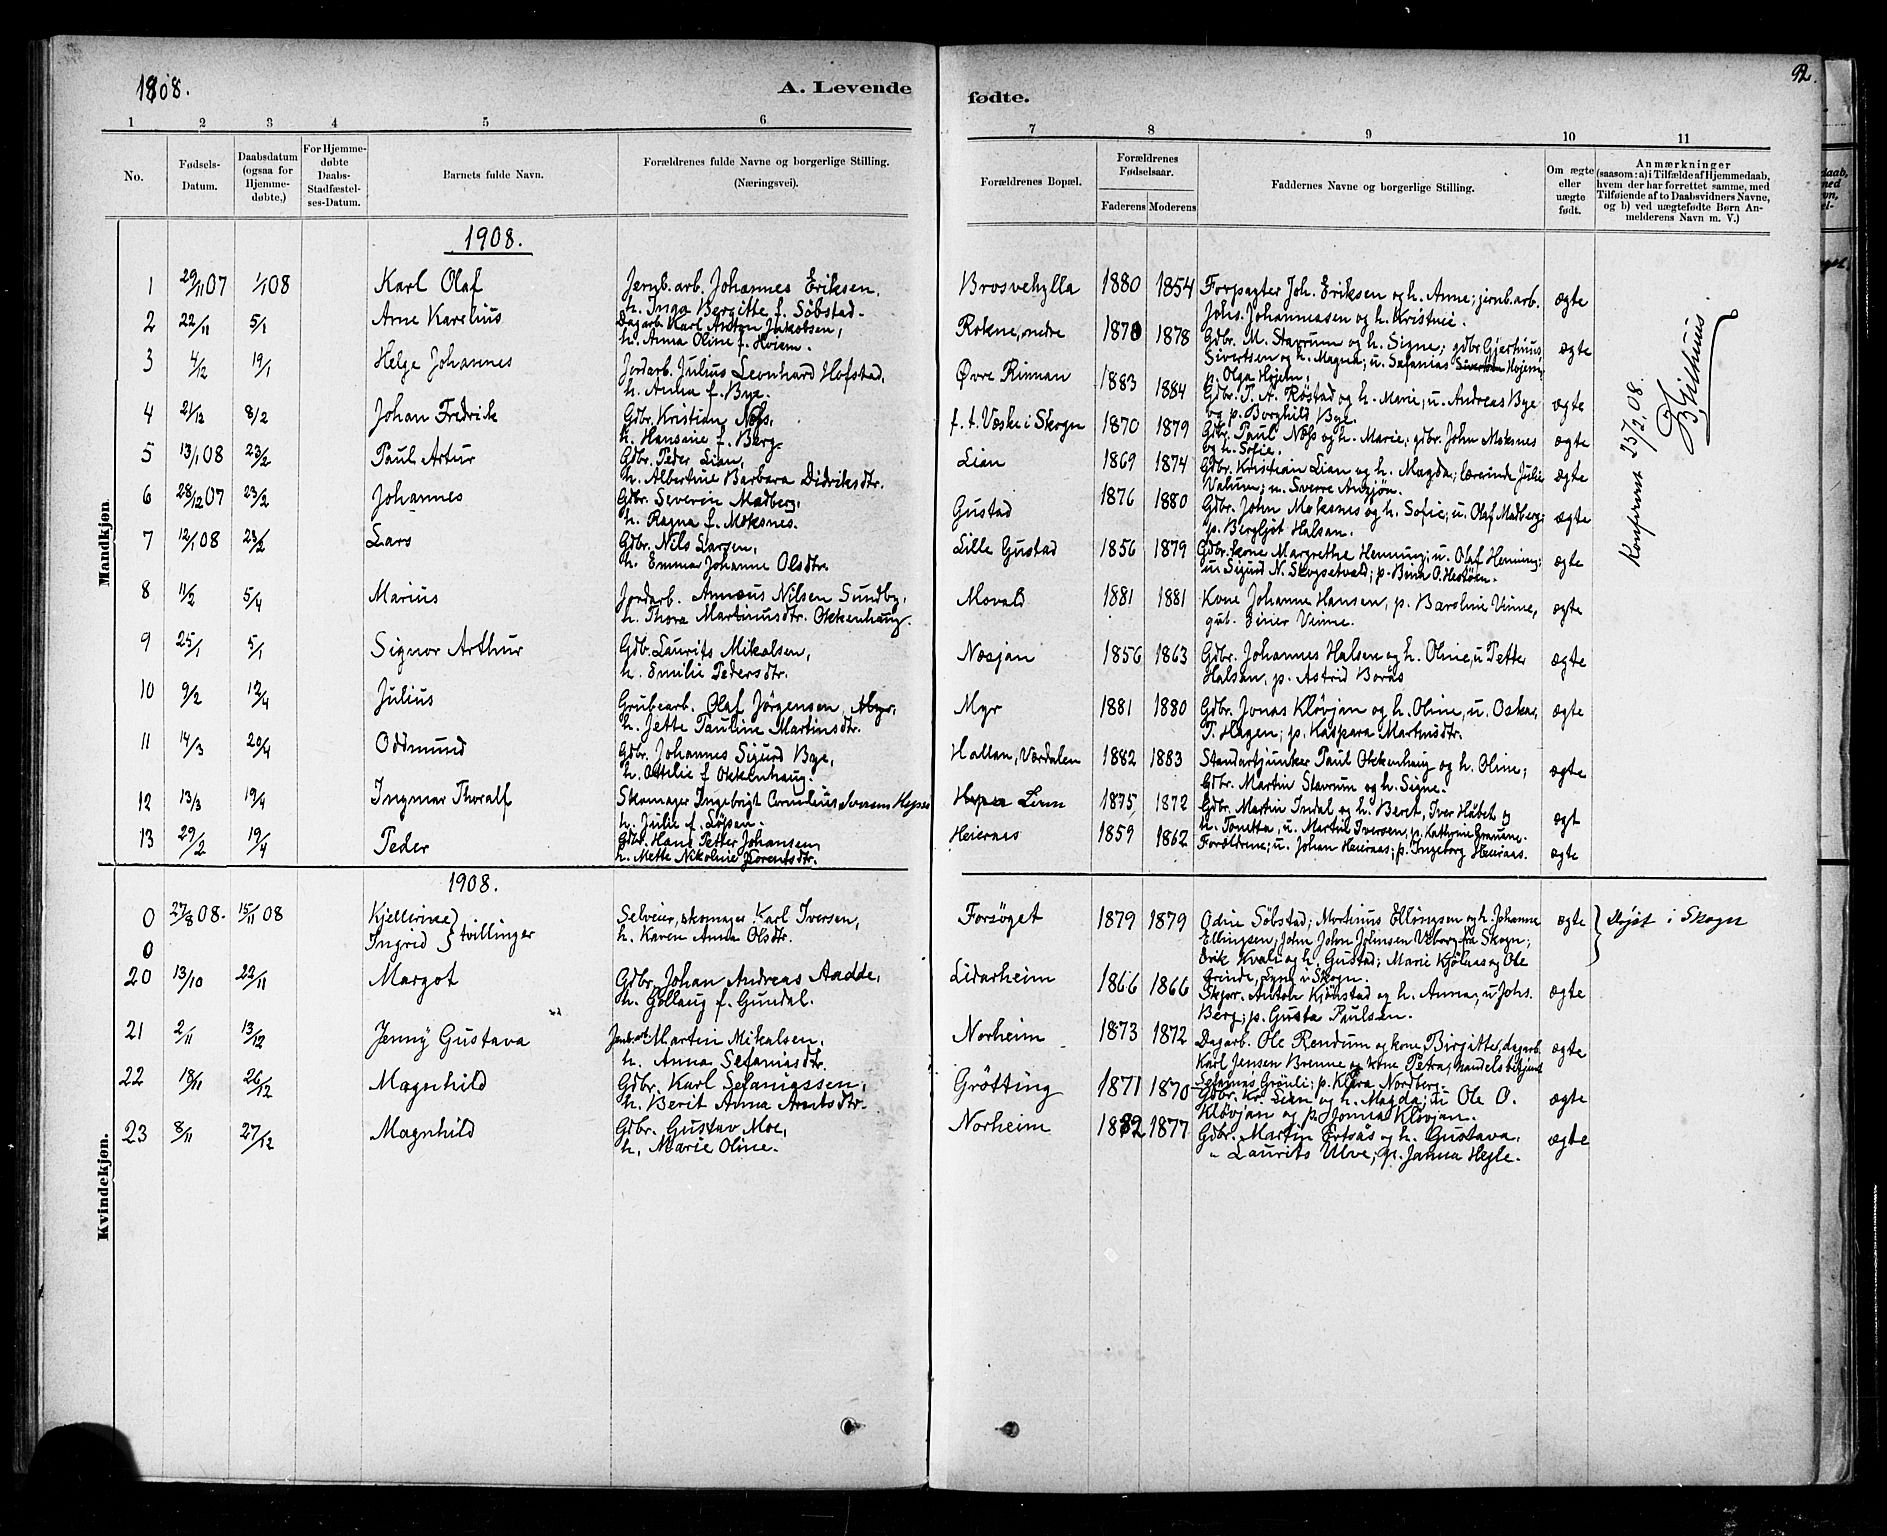 1908.
A. Levende
fødte.
92.
1 2 3 4 5 6 7 8 9 10 11
No.
Fødsels-Datum.
Daabsdatum (ogsaa for Hjemmedøbte,)
For Hjemmedøbte Daabs-Stadfæstelses-Datum.
Barnets fulde Navn.
Forældrenes fulde Navne og borgerlige Stilling. (Næringsvei).
Forældrenes Bopæl.
Forældrenes Fødselsaar.
Faderens Moderens
Faddernes Navne og borgerlige Stilling.
Om ægte eller uægte født.
Anmærkninger
(saasom: a) i Tilfælde af Hjemmedaab, hvem der har forrettet samme, med Tilføiende af to Daabsvidners Navne, og b) ved uægtefødte Børn Anmelderens Navn m. V.)
Mandkjøn
1908.
1 29/11 07 1/1 08 Karl Olaf Jernb.arb. Johannes Eriksen, Brosvehylla 1880 1854 Forpagter Joh. Eriksen og h. Anne; jernb.arb. ægte
h. Inga Bergitte f. Söbstad. Johs. Johannessen og h. Kristine.
2 22/11 5/1 Arne Karelius Dagarb. Karl Anton Jakobsen, Rokne, nedre 1878 1878 Gdbr. M. Stavrum og h. Signe; gdbr. Gjertinus ægte
h. Anna Oline f. Hviem. Sivertsen og h. Magna; u. Sefanias Hojem;
p. Olga Hojem;
3 4/12 19/1 Helge Johannes Jordarb. Julius Leonhard Hofstad, Øvre Rinnan 1883 1884 Gdbr. T. A. Røstad og h. Marie, u. Andreas Bye ægte
h. Anna f. Bye. og p. Borghild Bye.
4 21/12 8/2 Johan Fredrik Gdbr. Kristian Næss, f. t. Væske i Skogn 1870 1879 Gdbr. Paul Næss og h. Marie; gdbr. John Moksnes ægte
h. Hansine f. Berg. og h. Sofie.
5 13/1 08 23/2 Paul Artur Gdbr. Peder Lian, Lian 1869 1874 Gdbr. Kristian Lian og h. Magda; lærerinde Julie ægte
h. Albertine Barbara Didriksdtr. Valum; u. Sverre Anzjøn.
6 28/12 07 23/2 Johannes Gdbr. Severin Madberg, Gustad 1876 1880 Gdbr. John Moksnes og h. Sofie; u. Olaf Madberg; ægte
h. Ragna f. Moksnes. p. Bergljot Halsan.
7 12/1 08 23/2 Lars Gdbr. Nils Larsen, Lille Gustad 1856 1879 Gdbr.kone Margrethe Henning; u. Olaf Henning; ægte
h. Emma Johanne Olsdtr. u. Sigurd N. Skogsetvald; p. Bina O. Hestøen.
8 11/2 5/4 Marius Jordarb. Annæus Nilsen Sundby, Movald 1881 1881 Kone Johanne Hansen, p. Baroline Vinne, ægte
h. Thora Martinusdtr. Okkenhaug. gut. Einer Vinne.
9 25/1 5/1 Signor Arthur Gdb. Laurits Mikalsen, Næsjan 1856 1863 Gdbr. Johannes Halsen og h. Oline, u Petter ægte
h. Emilie Pedersdtr. Halsan, p. Astrid Borås
10 9/2 12/4 Julius Grubearb. Olaf Jörgensen, Myr 1881 1880 Gdbr. Jonas Kløvjan og h. Oline, u. Oskar ægte
h. Jette Pauline Martinsdtr. T. Hagen; p. Kaspara Martinsdtr.
11 14/3 20/4 Oddmund Gdbr. Johannes Sigurd Bye, Hallan, Værdalen 1882 1883 Standartjunker Paul Okkenhaug og h. Oline; ægte
h. Ottilie f. Okkenhaug. Gdbr. Martin Stavrum og h. Signe.
12 13/3 19/4 Ingmar Thoralf Skomager Ingebrigt Cornelius Iversen 1875 1872 Gdbr. Martin Indal og h. Beret, Iver Håbet og ægt
h. Julie f. Löpen. h. Tonetta, u. Martin Iversen, p. Kathrine Graune.
13 29/2 19/4 Peder Gdbr. Hans Petter Johansen, Heiernæs 1859 1862 Forældrene; u. Johan Heiernæs; p. Ingeborg Heiernæs. ægte
h. Mette Nikoline Lorentsdtr.
Konfereret 25/2, 08.
Kvindekjøn.
1908.
0 27/8 08. 15/11 08 Kjellrine Selveier, skomager Karl Iversen, Forsöget 1879 1879 Odin Söbstad; Mortinus Ellingsen og h. Johanne ægte Døpt i Skogn
0 Ingrid } tvillinger h. Karen Anna Olsdtr. Ellingsen; John Johnsen Viborg fra Skogn;
Erik Kvale og h. Gustad; Marie Kjölaas og Ole
Grinde, i Skogn.
20 13/10 22/11 Margot Gdbr. Johan Andreas Aadde, Lidarheim 1866 1866 Skpr. Anton Kjönstad og h. Anna, u Johs. ægte
h. Gollaug f. Gundal. Berg; p. Gusta Paulsen.
21 2/11 13/12 Jenny Gustava Jernb.arb Martin Mikalsen, Norheim 1873 1872 Dagarb. Ole Rendum og kone Birgitte, dagarb. ægte
h. Anna Sefaniasdtr. Karl Jensen Brenne og kone Petra, handelsbetjent
Sefanias Gröuli; p. Klara Nordberg.
22 18/11 26/12 Magnhild Gdbr. Karl Sefaniassen, Grötting 1871 1870 Gdbr. Kr. Lian og h. Magda; u Ole O. ægte
h. Berit Anna Arntsdtr. Kløvjan og p. Jonna Kløvjan.
23 8/11 27/12 Magnhild Gdbr. Gustav Moe, Norheim 1882 1877 Gdbr. Martin Ertsås og h. Gustava, ægte
h. Marie Oline. " Laurits Ulve; p. Janna Hegle.